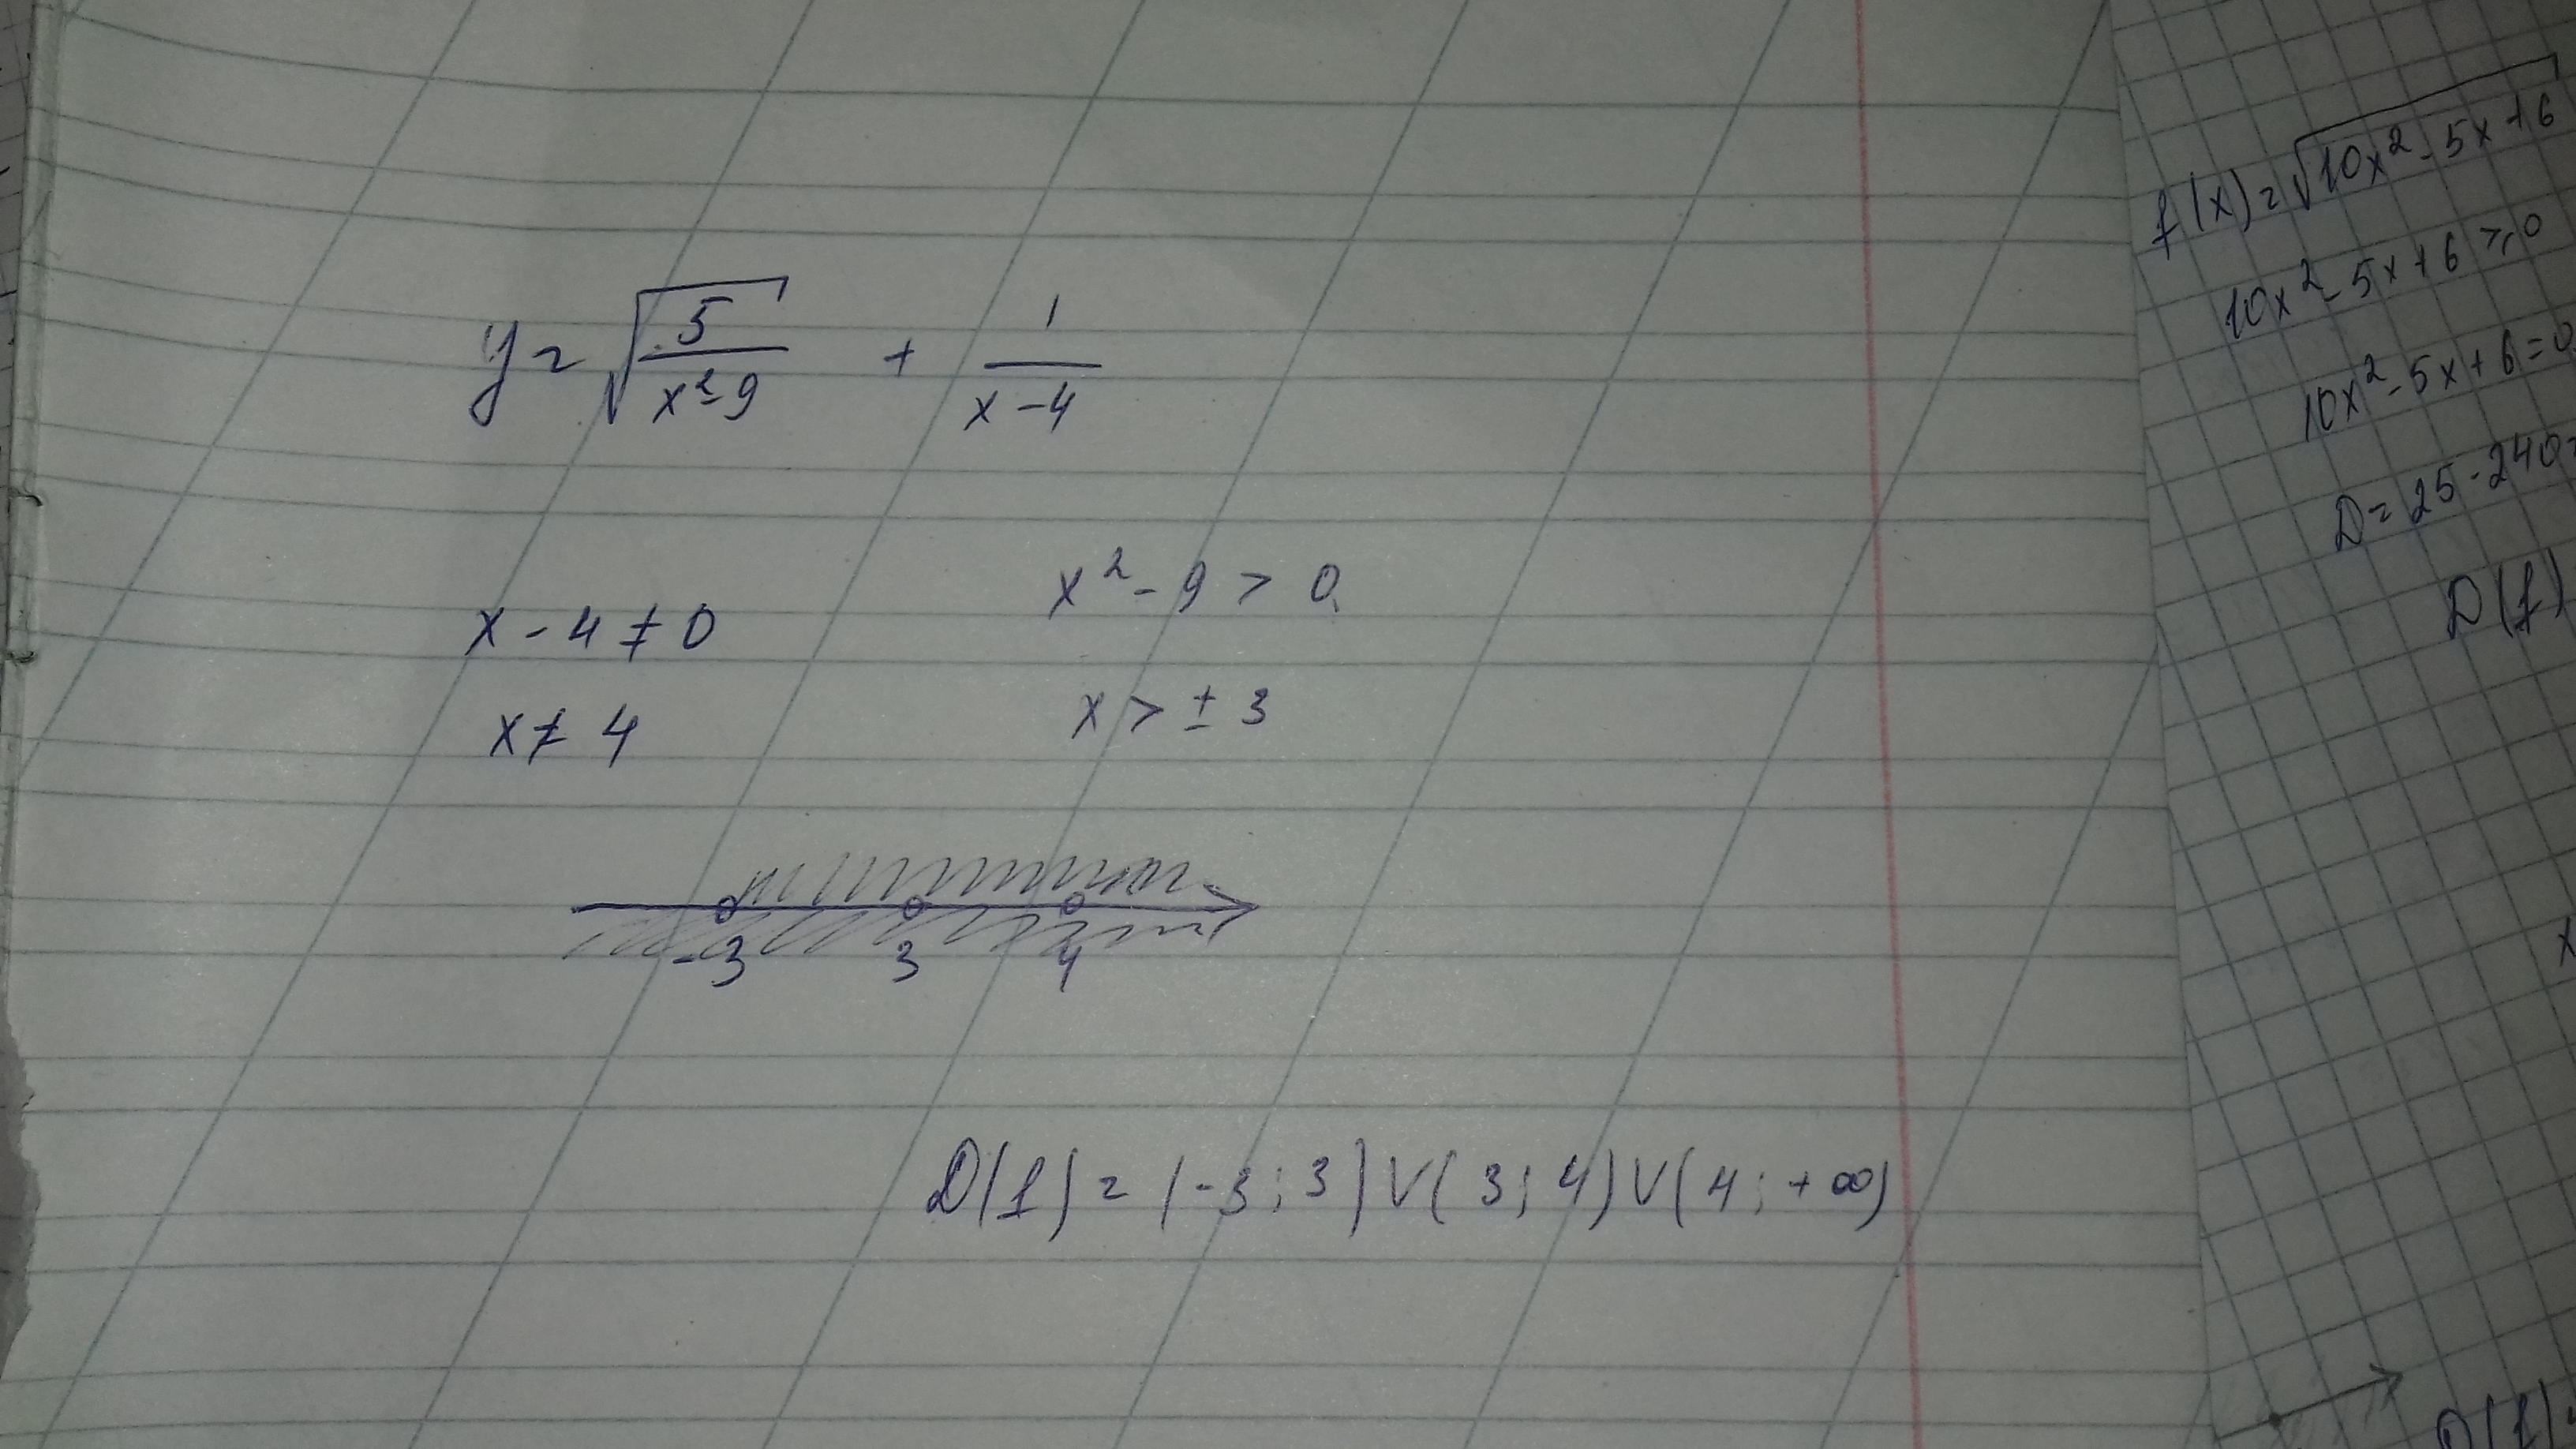 y = √(5/(x² - 9)) + 1/(x - 4)
x - 4 ≠ 0
x² - 9 > 0
x ≠ 4
x > ± 3
-3 3 4
D(f) = (-3; 3) V (3; 4) V (4; +∞)
f(x) = √(10x² - 5x + 6
10x² - 5x + 6 ≥ 0
10x² - 5x + 6 = 0
D = 25 - 240 =
D(f)
x
D(f)